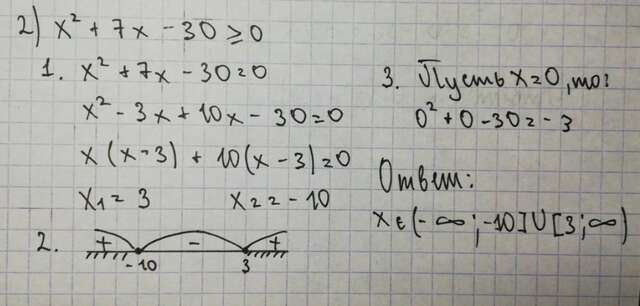 2) x² + 7x - 30 ≥ 0
1. x² + 7x - 30 = 0
x² - 3x + 10x - 30 = 0
x(x - 3) + 10(x - 3) = 0
x₁ = 3 x₂ = -10
2. + - +
-10 3
3. Пусть x = 0, то:
0² + 0 - 30 = -3
Ответ:
x ∈ (-∞; -10] ∪ [3; ∞)